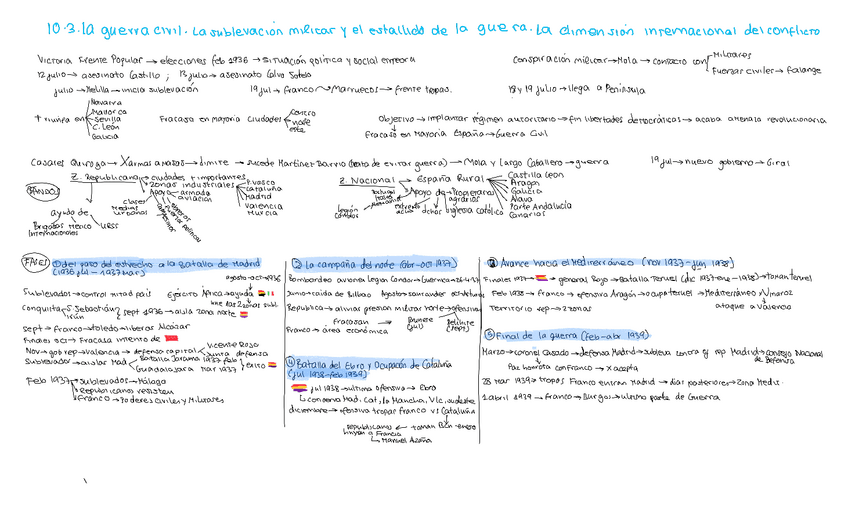 10.3. la guerra civil. La sublevación militar y el estallido de la guerra. La dimensión internacional del conflicto
Victoria Frente Popular → elecciones feb 1936 → situación política y social empeora
Conspiración militar → Mola → contacto con
Militares
fuerzas civiles → falange
12 julio → asesinato Castillo ; 13 julio → asesinato Calvo Sotelo
julio → Melilla → inicia sublevación
19 jul → Franco → Marruecos → frente tropas.
18 y 19 julio → llega a Península
+ triunfa en
Navarra
Mallorca
Sevilla
C. León
Galicia
Fracaso en mayoría ciudades
Centro
norte
este
Objetivo → implantar régimen autoritario → fin libertades democráticas → acaba amenaza revolucionaria
Fracaso en mayoría España → Guerra Civil
Casares Quiroga → X armas a masas → dimite → sucede Martínez Barrio (trata de evitar guerra) → Mola y Largo Caballero → guerra
19 jul → nuevo gobierno → Giral
BANDOS
Z. Republicana → ciudades + importantes
zonas industriales
P. Vasco
Cataluña
Madrid
Valencia
Murcia
Apoya
armada
aviación
clases
medias
urbanas
obreros
ayuda de
Brigadas
Internacionales
México
URSS
Z. Nacional → España Rural
Castilla León
Aragón
Galicia
Álava
Parte Andalucía
Canarias
Apoyo de → Propietarios
agrarios
Iglesia católica
dchas
Portugal
Italia
Legión
Cóndor
FASES
① Del paso del estrecho a la Batalla de Madrid
(1936 jul - 1937 mar)
agosto-oct-1936
Sublevados → control mitad país
Ejército África → ayuda
une las 2 zonas subl.
Conquista
S. Sebastián
Irún
sept 1936 → aisla zona norte
Sept → Franco → Toledo → liberar Alcázar
Finales oct → Fracasa intento de
Nov → gob rep → Valencia → defensa capital
Vicente Rojo
Junta defensa
Sublevados → aislar Mad
Batalla Jarama 1937 feb
Guadalajara mar 1937
éxito
Feb 1937
sublevados → Málaga
Republicanos resisten
Franco → Poderes civiles y militares
② La campaña del norte (abr-oct 1937)
Bombardeo aviones Legión Cóndor → Guernica → 26-4-37
Junio → caída de Bilbao
República → aliviar presión militar norte → ofensiva
fracasan
Brunete
(jul)
Belchite
(sept)
Franco → área económica
④ Batalla del Ebro y Ocupación de Cataluña
(jul 1938 - feb 1939)
jul 1938 → última ofensiva → Ebro
conserva Mad, Cat, la Mancha, Vlc, sudeste
diciembre → ofensiva tropas Franco vs Cataluña
republicanos
huyen a Francia
toman Bcn - enero
Manuel Azaña
③ Avance hacia el Mediterráneo (nov 1937 - jun 1938)
Finales 1937 → general Rojo → Batalla Teruel (dic 1937 - ene - 1938) → toman Teruel
Feb 1938 → Franco → ofensiva Aragón → ocupa Teruel → Mediterráneo → Vinaroz
Territorio rep → 2 zonas
ataque a Valencia
⑤ Final de la guerra (feb-abr 1939)
Marzo → coronel Casado → defensa Madrid → subleva contra gob rep Madrid → consejo Nacional
de Defensa
Paz honrosa con Franco → X acepta
28 mar 1939 → tropas Franco entran Madrid → días posteriores → zona Medit.
1 abril 1939 → Franco → Burgos → último parte de Guerra